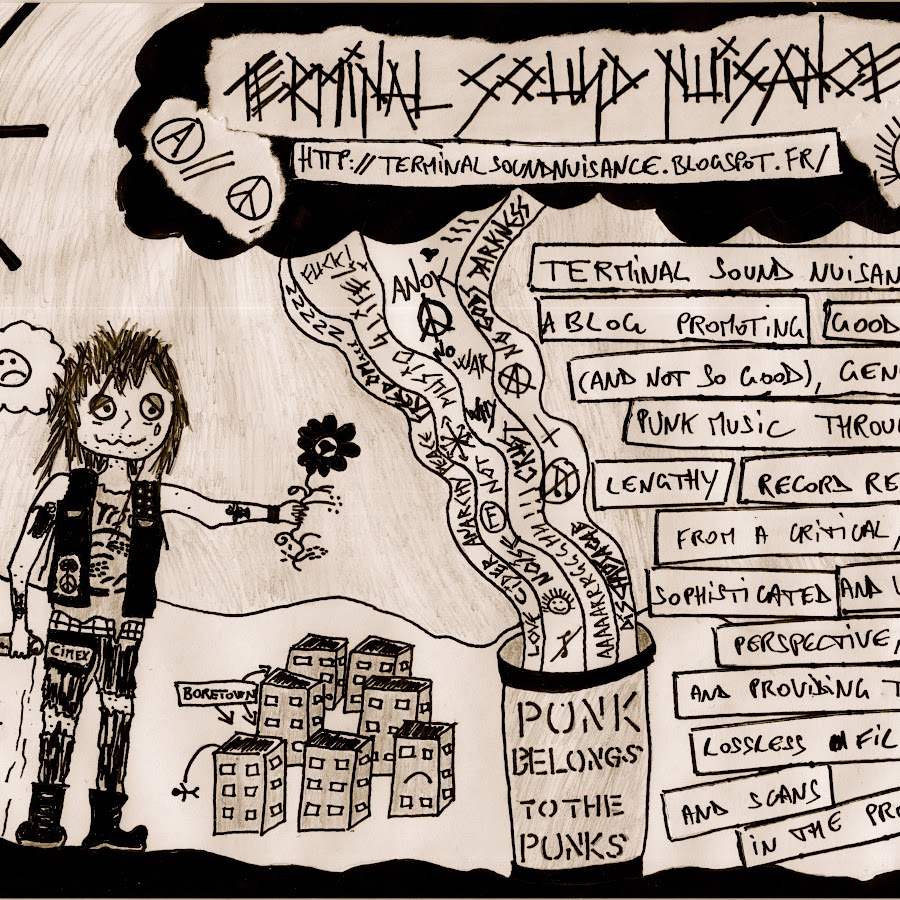 TERMINAL SOUND NUISANCE
HTTP://TERMINALSOUNDNUISANCE.BLOGSPOT.FR/
TERMINAL SOUND NUISAN
A BLOG PROMOTING GOOD
(AND NOT SO GOOD), GEN
PUNK MUSIC THROU
LENGTHY RECORD RE
FROM A CRITICAL,
SOPHISTICATED AND
PERSPECTIVE,
AND PROVIDING T
LOSSLESS FIL
AND SCANS
IN THE PRO
FUCK!
ANOK
NO WAR
WHY
NO GODS DARKNESS
ANARCHY PEACE
NOT
CRUST
LOVE CIDER
NOISE
CIMEX
BORETOWN
PUNK
BELONGS
TO THE
PUNKS